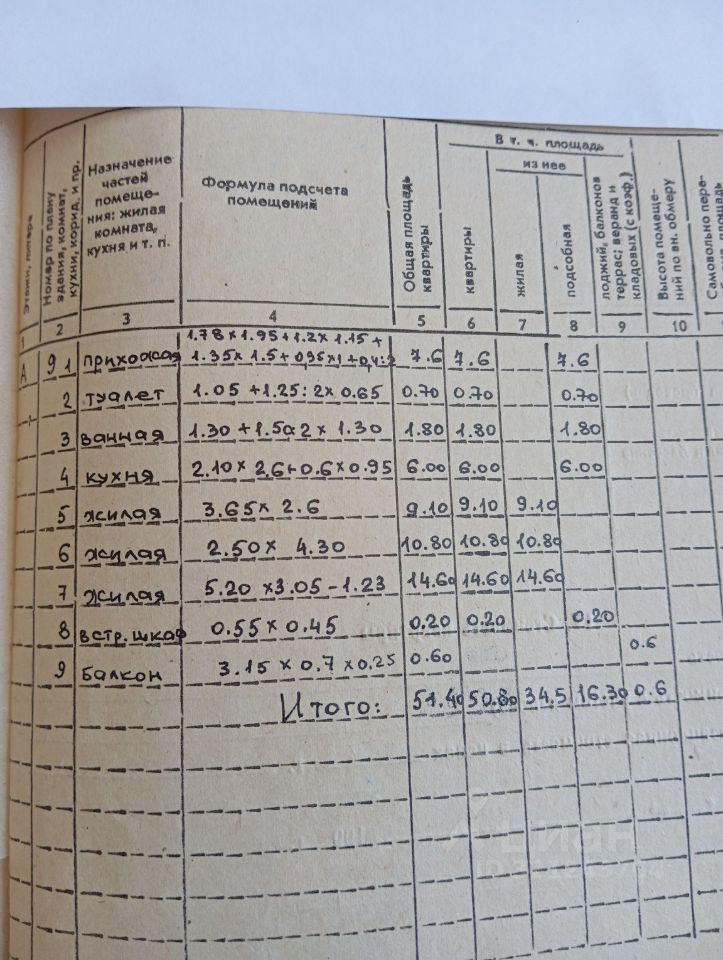 В т. ч. площадь
из нее
Этажи, литера
Номер по плану здания, комнат, кухни, корид. и пр.
Назначение частей помеще- ния: жилая комната, кухня и т. п.
Формула подсчета помещений
Общая площадь квартиры
квартиры
жилая
подсобная
лоджий, балконов террас; веранд и кладовых (с коэф.)
Высота помеще- ний по вн. обмеру
Самовольно пере-
1 2 3 4 5 6 7 8 9 10
1.78 x 1.95 + 1.2 x 1.15 +
А 9 1 прихожая 1.35 x 1.5 + 0,95 x 1 + 0,4:2 7.6 7.6 7.6
2 туалет 1.05 + 1.25 : 2 x 0.65 0.70 0.70 0.70
3 ванная 1.30 + 1.50:2 x 1.30 1.80 1.80 1.80
4 кухня 2.10 x 2.6 + 0.6 x 0.95 6.00 6.00 6.00
5 жилая 3.65 x 2.6 9.10 9.10 9.10
6 жилая 2.50 x 4.30 10.80 10.80 10.80
7 жилая 5.20 x 3.05 - 1.23 14.60 14.60 14.60
8 встр. шкаф 0.55 x 0.45 0.20 0.20 0.20
9 балкон 3.15 x 0.7 x 0.25 0.60 0.6
Итого: 51.40 50.80 34.5 16.30 0.6